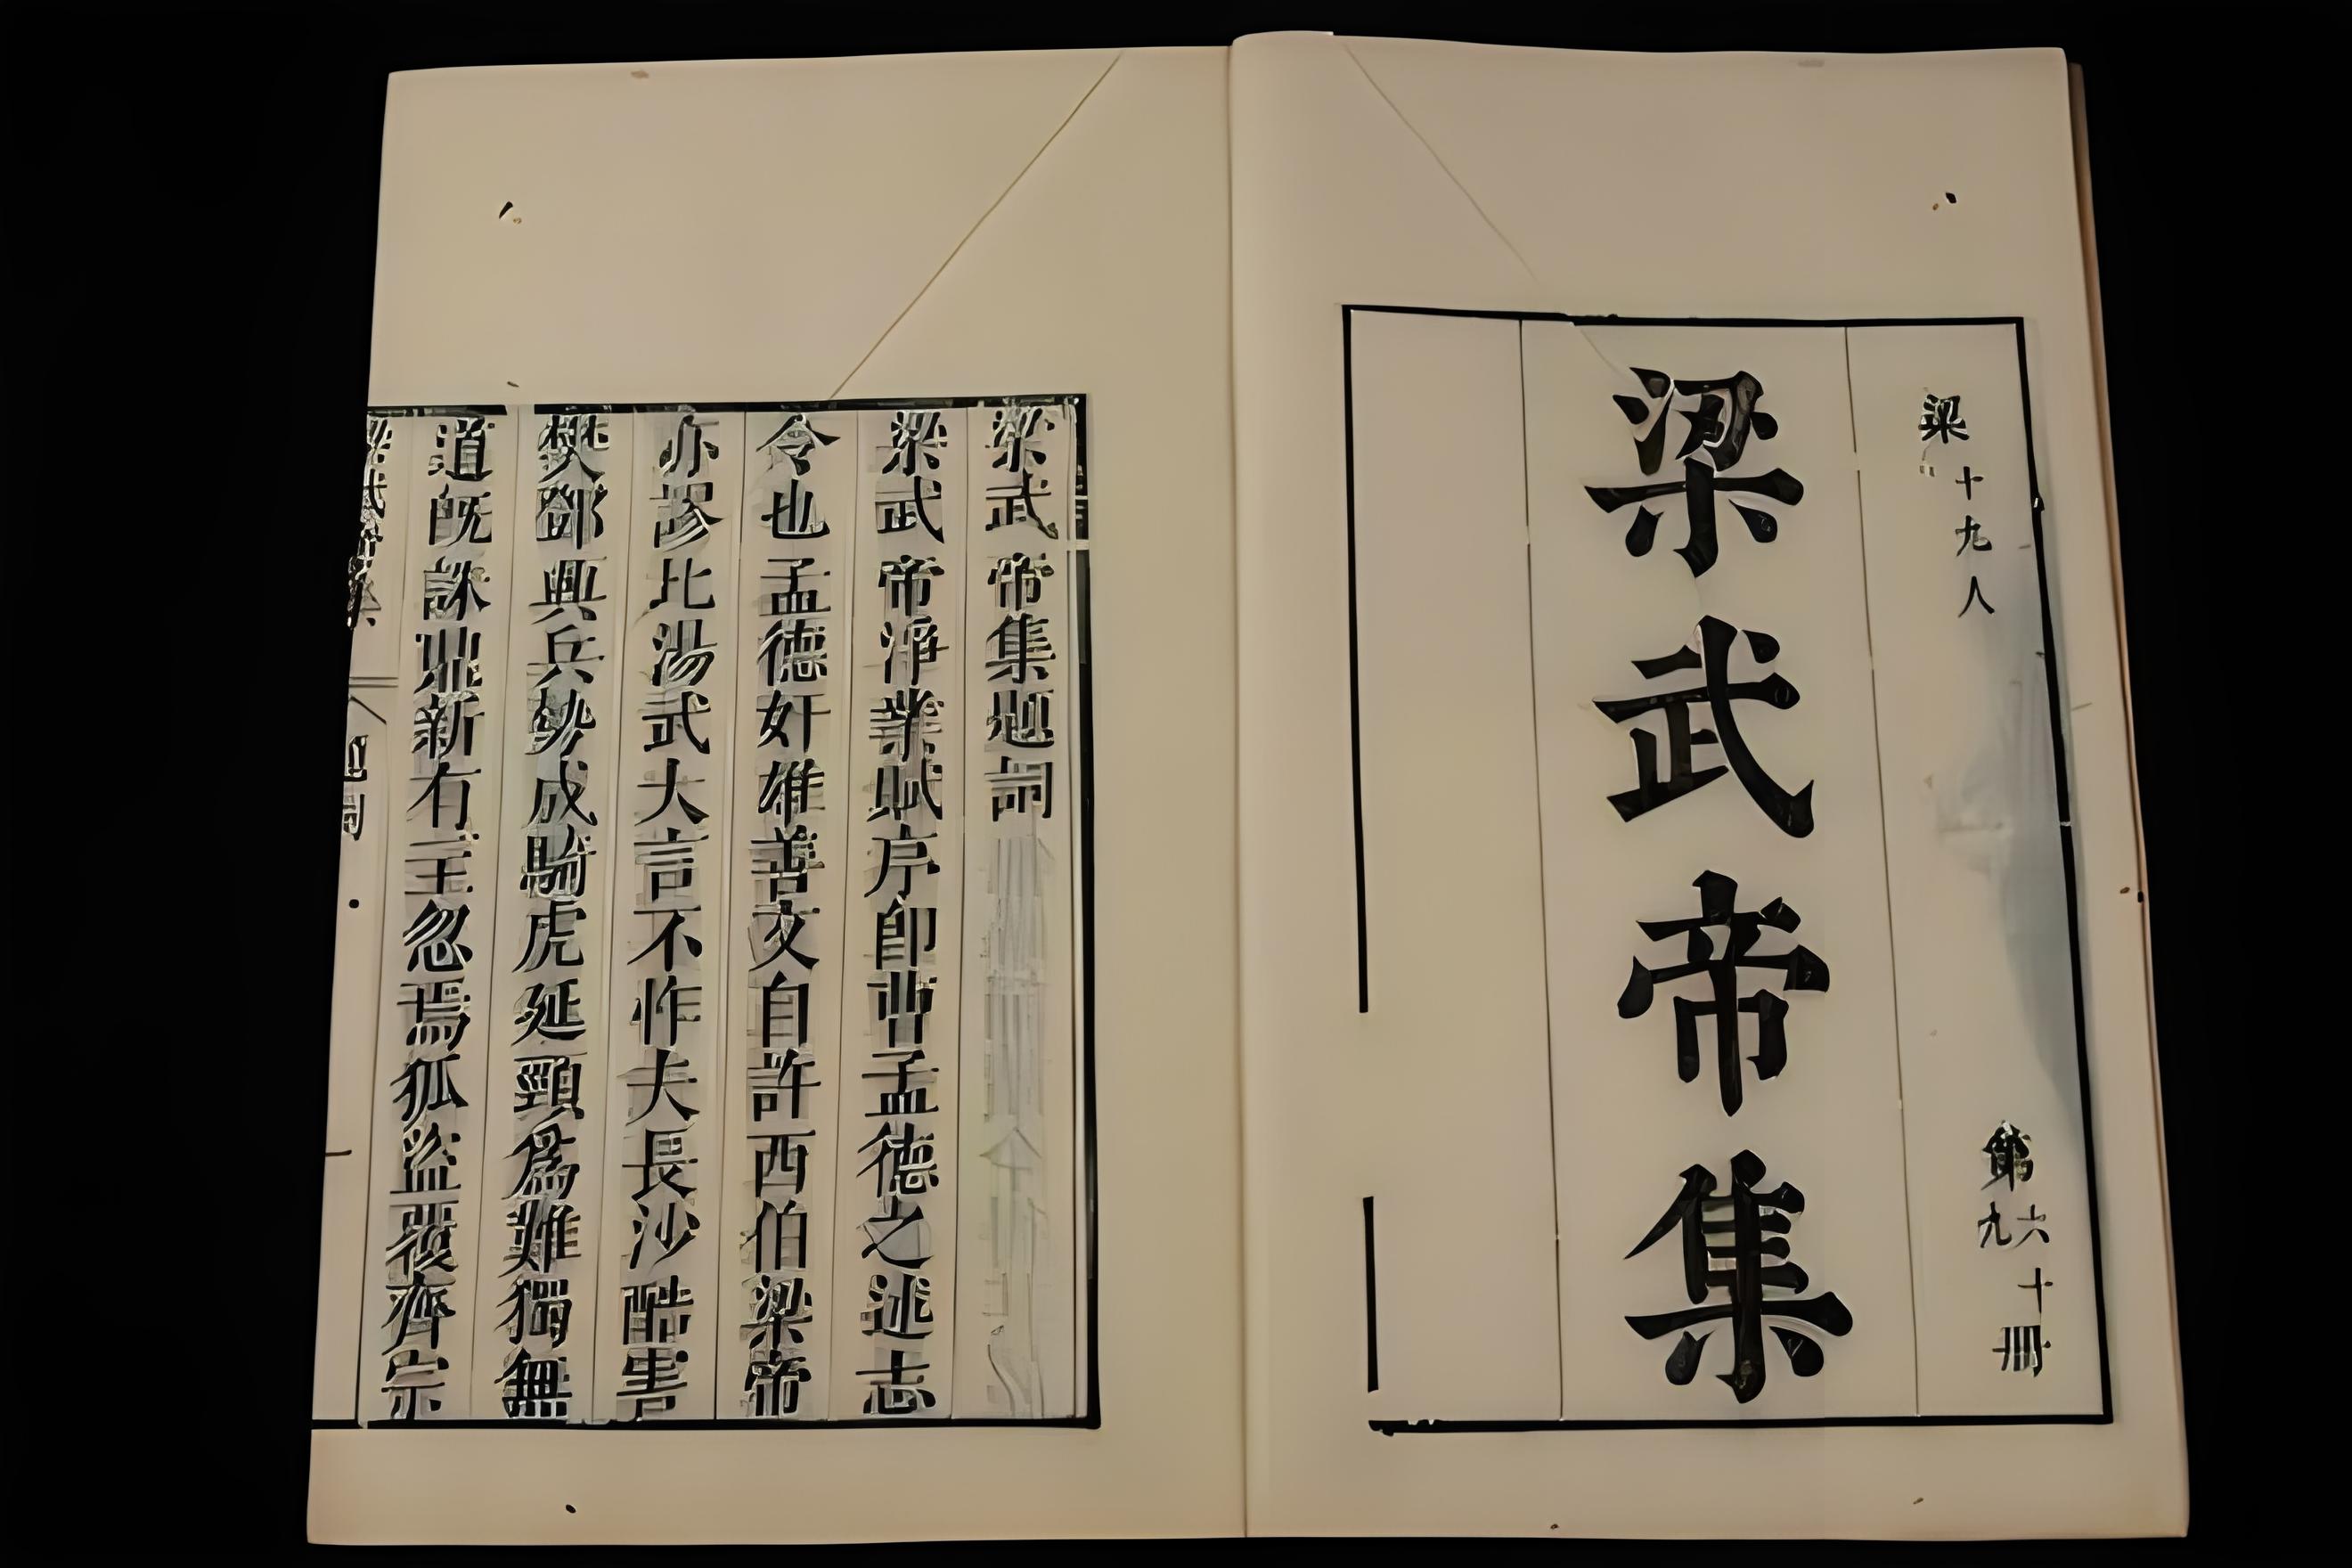 梁 十九人 第六十九冊
梁武帝集
梁武帝集題詞
梁武帝淨業賦序即曹孟德之述志
令也孟德奸雄善文自許西伯梁帝
亦謬比湯武大言不怍夫長沙酷害
樊鄧興兵勢成騎虎延頸爲難獨無
道既誅鼎新有主忽焉狐盜覆齊宗